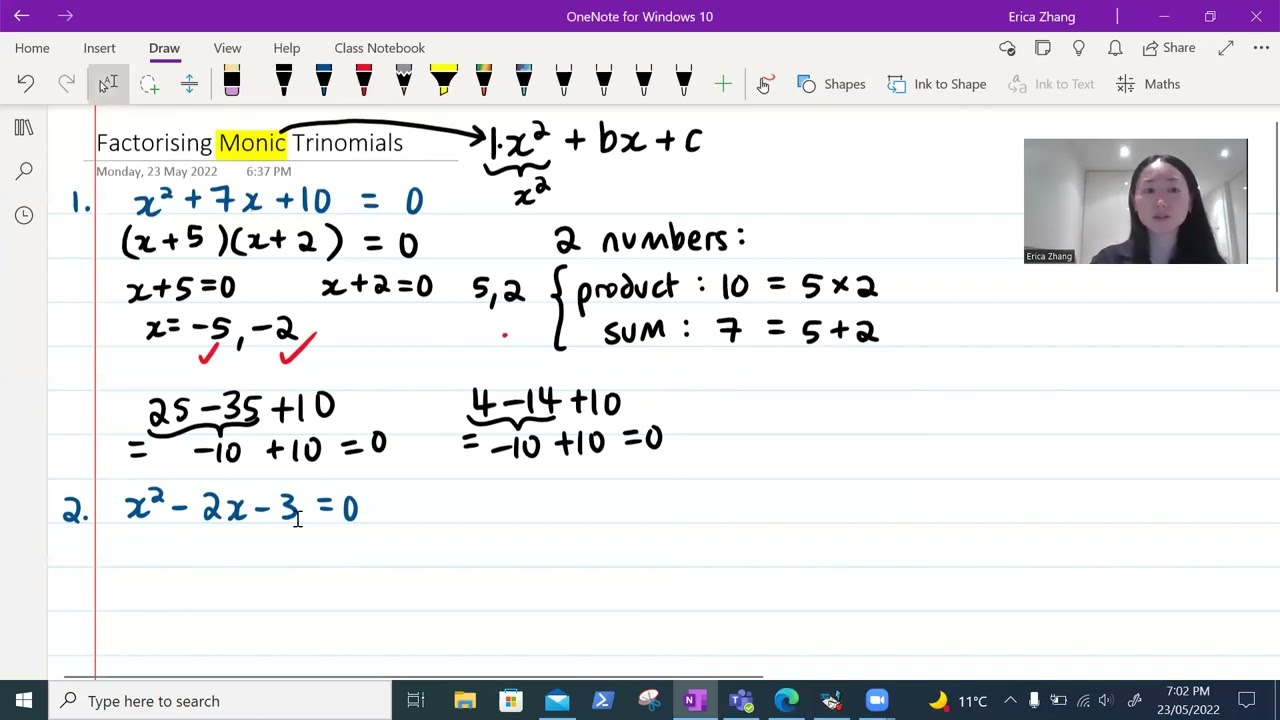 OneNote for Windows 10
Erica Zhang
Home Insert Draw View Help Class Notebook Share
Shapes Ink to Shape Ink to Text Maths
Factorising Monic Trinomials 1·x² + bx + c
x²
Monday, 23 May 2022 6:37 PM
1. x² + 7x + 10 = 0
(x + 5)(x + 2) = 0 2 numbers:
x + 5 = 0 x + 2 = 0 5, 2 { product : 10 = 5 × 2
x = -5, -2 sum : 7 = 5 + 2
25 - 35 + 10 4 - 14 + 10
= -10 + 10 = 0 = -10 + 10 = 0
2. x² - 2x - 3 = 0
Erica Zhang
Type here to search
11°C
7:02 PM
23/05/2022